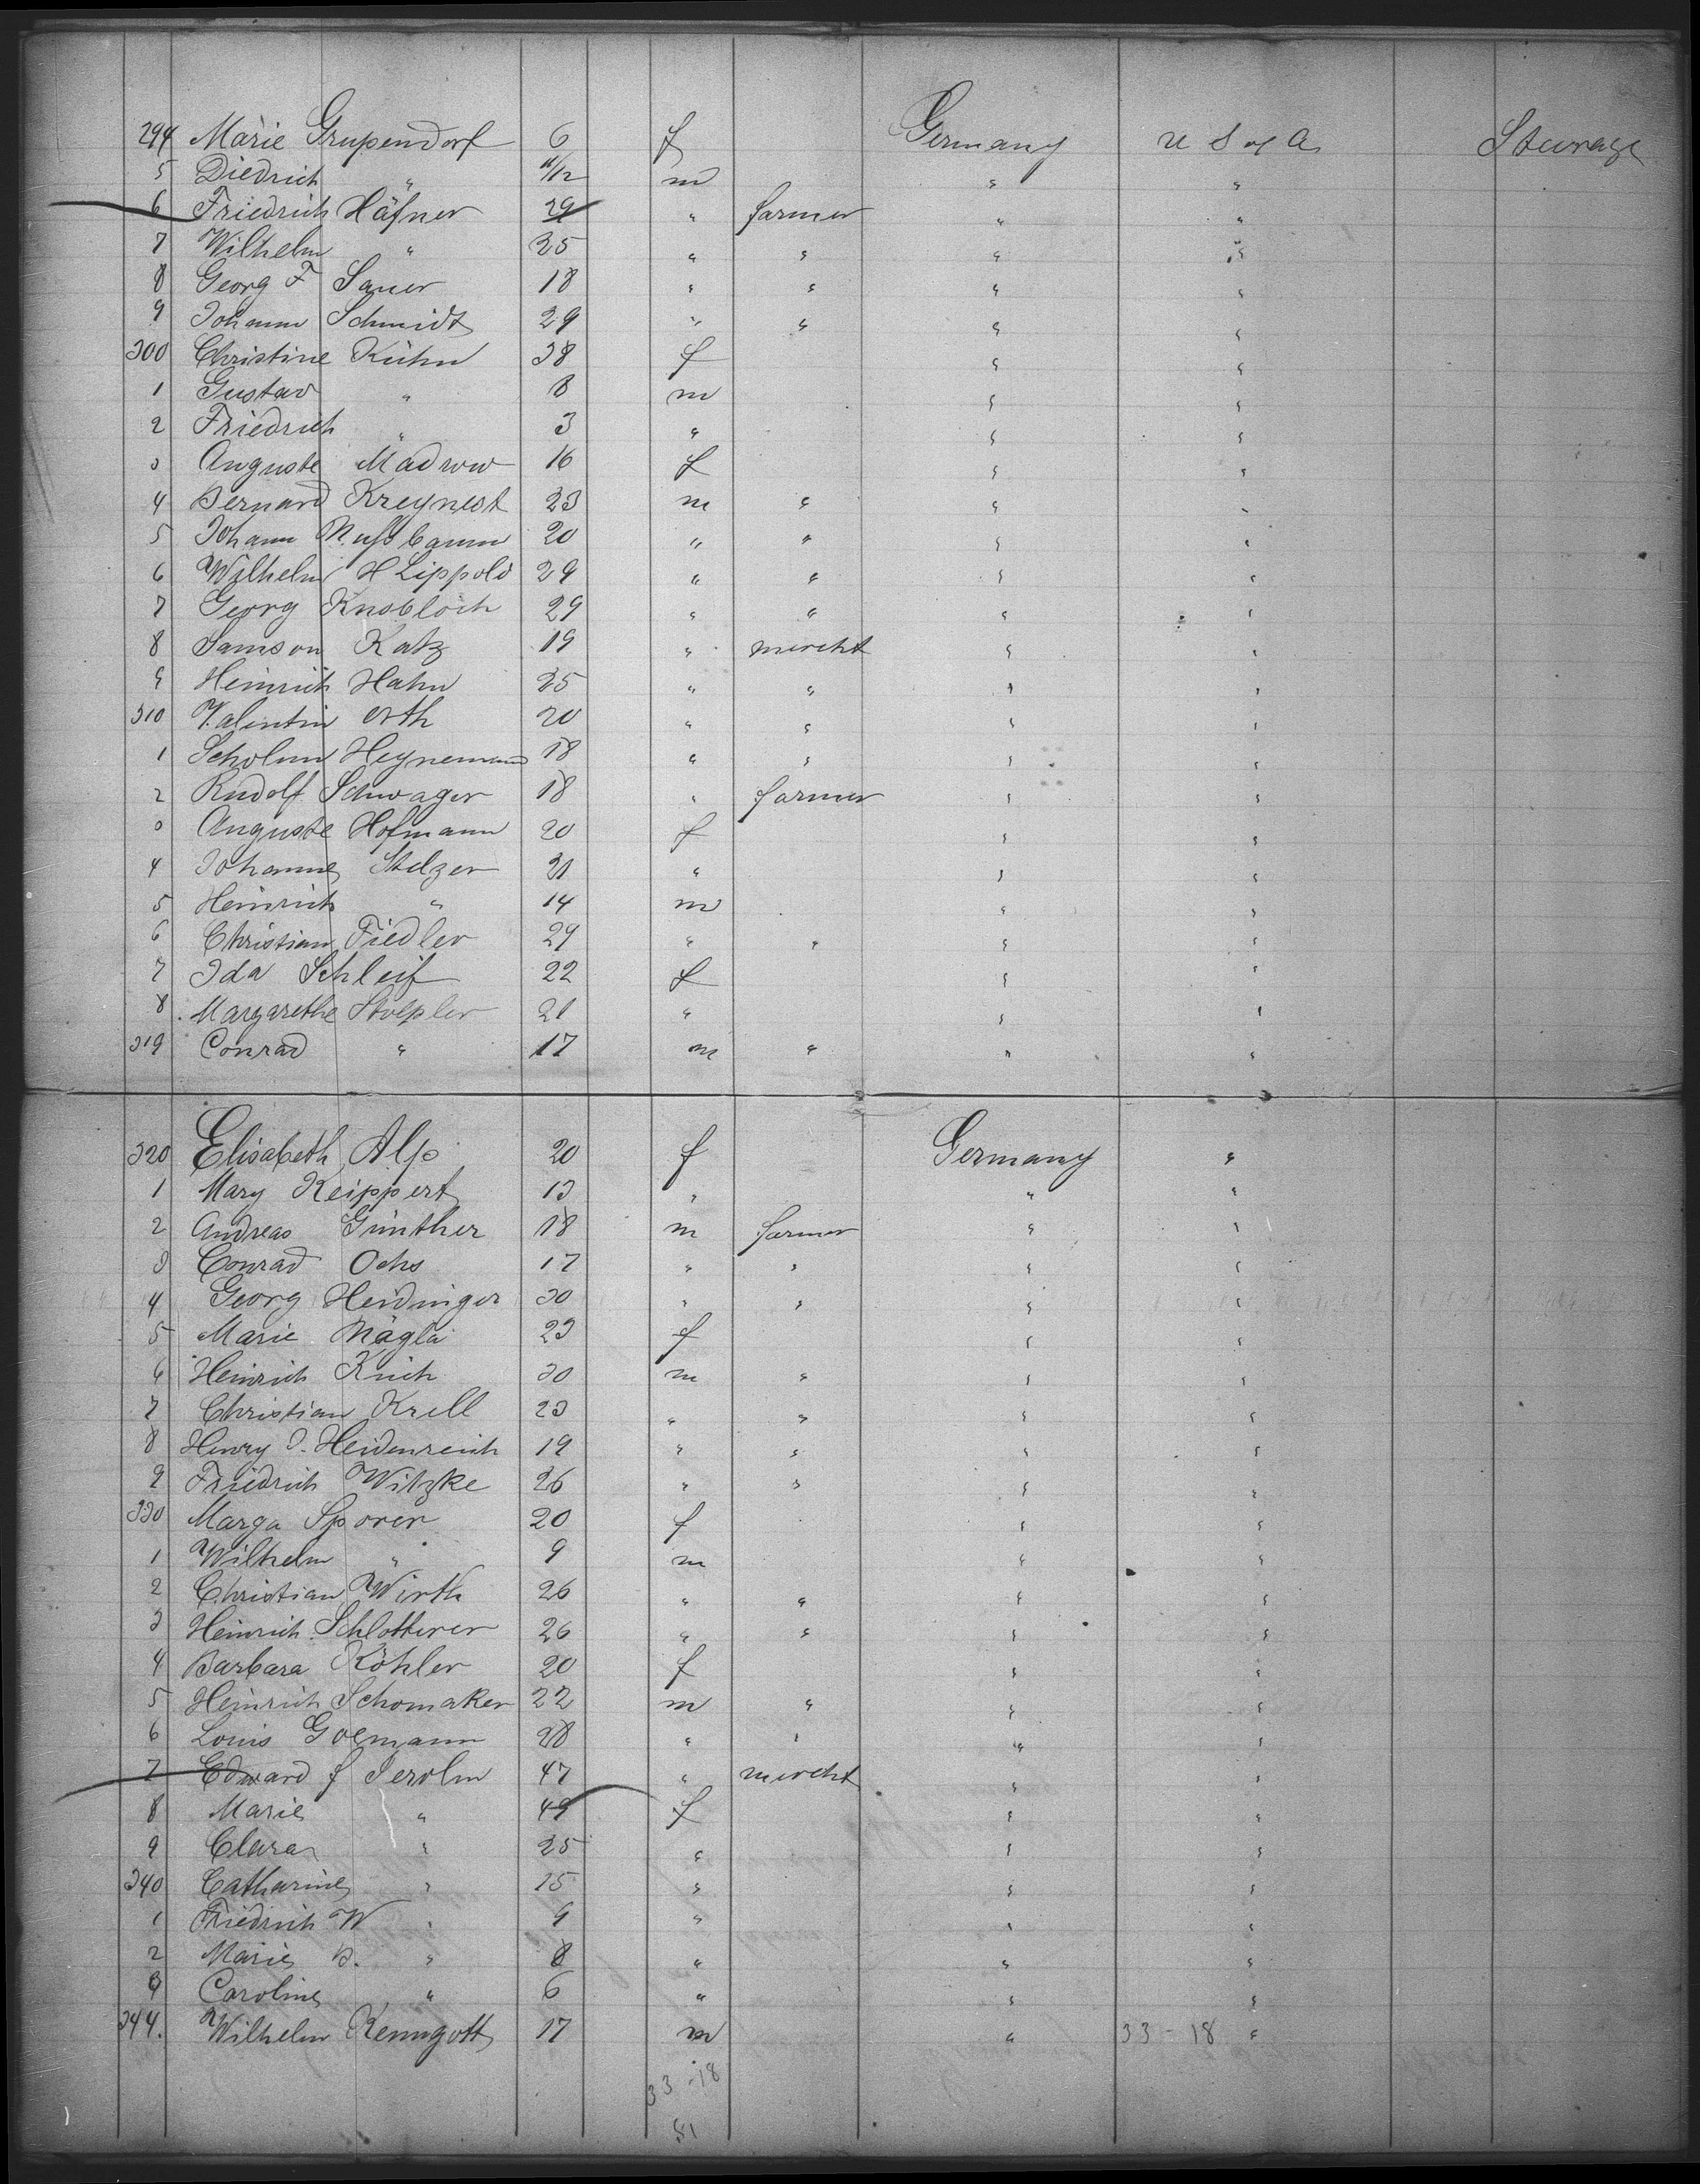 294 Marie Grupendorf 6 f Germany U S of A Steerage
5 Diedrich " 11/12 m " "
6 Friedrich Häfner 29 " farmer " "
7 Wilhelm " 25 " " " "
8 Georg F Sauer 18 " " " "
9 Johann Schmidt 29 " " " "
300 Christine Kühn 38 f " "
1 Gustav " 8 m " "
2 Friedrich " 3 " " "
3 Auguste Madrow 16 f " "
4 Bernard Kreynest 23 m " " "
5 Johann Nußbaum 20 " " " "
6 Wilhelm H Lippold 29 " " " "
7 Georg Knobloch 29 " " " "
8 Samson Katz 19 " mercht " "
9 Heinrich Hahn 25 " " " "
310 Valentin Orth 20 " " " "
1 Scholum Heynemann 18 " " " "
2 Rudolf Schwager 18 " farmer " "
3 Auguste Hofmann 20 f " "
4 Johanne Stelzer 21 " " "
5 Heinrich " 14 m " "
6 Christian Fiedler 29 " " " "
7 Ida Schleif 22 f " "
8 Margarethe 21 " " "
319 Conrad " 17 m " " "
320 Elisabeth Alp 20 f Germany "
1 Mary Keippert 13 " " "
2 Andreas Günther 18 m farmer " "
3 Conrad Ochs 17 " " " "
4 Georg Heidinger 30 " " " "
5 Marie Nägla 23 f " "
6 Heinrich Knich 30 m " " "
7 Christian Krell 23 " " " "
8 Henry J. Heidenreich 19 " " " "
9 Friedrich Witzke 26 " " " "
330 Marga Sporer 20 f " "
1 Wilhelm " 9 m " "
2 Christian Wirth 26 " " " "
3 Heinrich Schlotterer 26 " " " "
4 Barbara Köhler 20 f " "
5 Heinrich Schomaker 22 m " " "
6 Louis Goemann 28 " " " "
7 Edward f Jerolm 47 " mercht " "
8 Marie " 49 f " "
9 Clara " 25 " " "
340 Catharine " 15 " " "
1 Friedrich W " 9 " " "
2 Marie B. " 8 " " "
Caroline " 6 " " "
344. Wilhelm Kenngott 17 m " 33-18 "
33-18
51